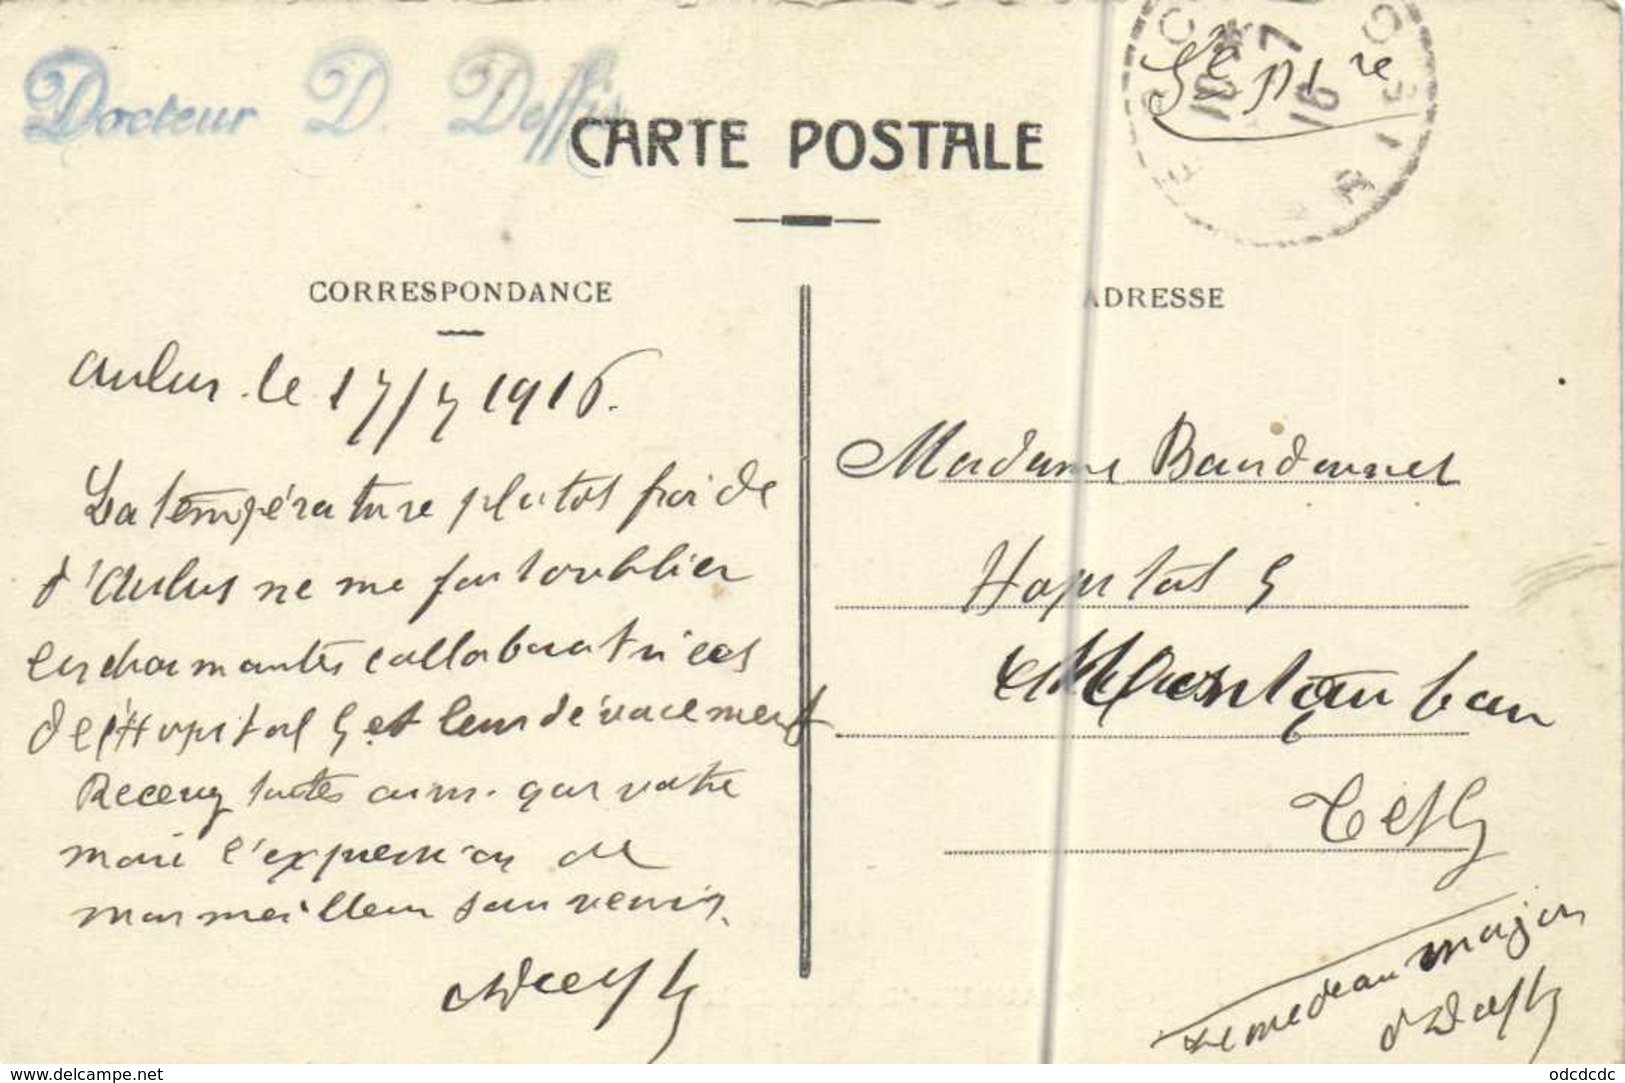 Docteur D. Deffis
CARTE POSTALE
18-7
16
CORRESPONDANCE
ADRESSE
Aulus le 17/7 1916.
La température plutot froide
d'Aulus ne me fait oublier
les charmantes collaboratrices
de l'Hopital 5 et leur dévouement
Recevez toutes ainsi que votre
mari l'expression de
mon meilleur souvenir.
Madame
Hopital 5
Montauban
Le medecin major
www.delcampe.net
odcdcdc